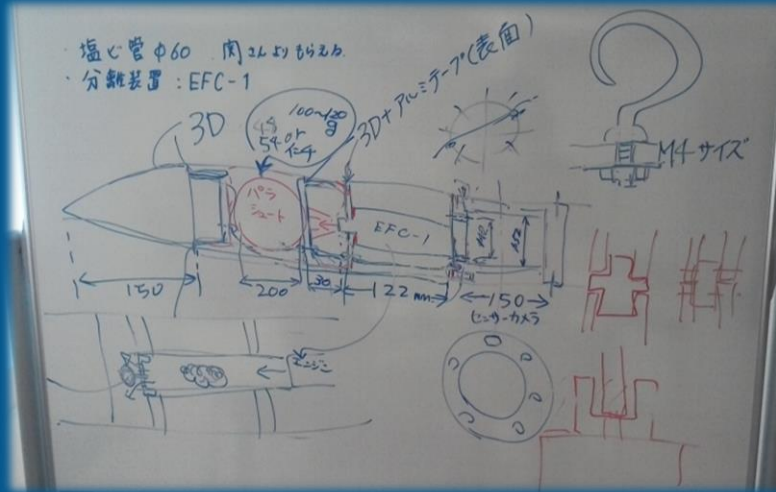 ・塩ビ管φ60 関さんよりもらえる.
・分離装置:EFC-1
3D
100~120
g
or
3D+アルミテープ(表面)
M4サイズ
パラ
シュート
EFC-1
150
200
30
122mm
150
センサーカメラ
エンジン